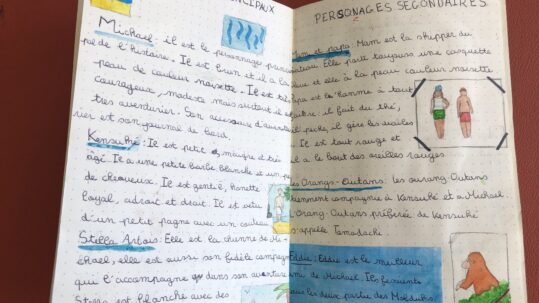 CIPAUX
Michael: il est le personnage prin
pal de l'histoire. Il est brun et il a la
peau de couleur noisette. Il est tr
courageux, modeste mais surtout il est
très aventurier. Son accessoire d'aventu
rier est son journal de bord.
Kensuké: Il est petit, maigre et très
âgé. Il a une petite barbe blanche et un peu
de cheveux. Il est gentil, honnête
loyal, adroit et droit. Il est vêtu
d'un petit pagne avec un couteau
Stella Artois: Elle est la chienne de Mi-
chael, elle est aussi son fidèle compagnon
qui l'accompagne dans son aventure
Stella est blanche avec des
PERSONAGES SECONDAIRES
Mam et papa: Mam est la skipper du
bateau. Elle porte toujours une casquette
bleue et elle à la peau couleur noisette
Papa est le homme à tout
faire: il fait du thé,
il pêche, il gère les voiles
Il est tout rouge et
il a le bout des oreilles rouges
Les Orangs-Outans: les ourang-Outans
tiennent compagnie à Kensuké et a Michael
L'Orang Outans préférée de Kensuké
s'appele Tomodachi
Eddie: Eddie est le meilleur
ami de Michael. Il
tous les deux partie des Mudlarks